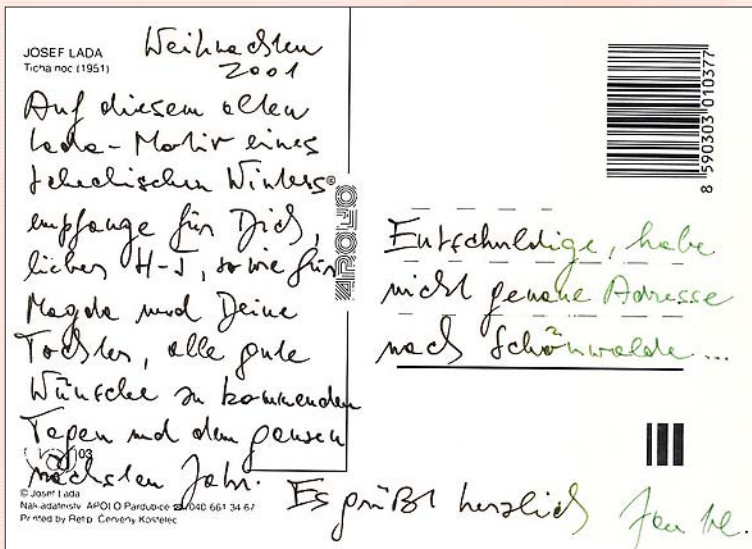 JOSEF LADA
Tichá noc (1951)
Weihnachten
2001
Auf diesem alten
Lada-Motiv eines
tschechischen Winters
empfange für Dich,
lieber H-J, sowie für
Magda und Deine
Tochter, alle gute
Wünsche zu kommenden
Tagen und dem ganzen
nächsten Jahr.
03
© Josef Lada
Nakladatelství APOLO Pardubice ☎ 040 661 34 67
Printed by Retip Červený Kostelec
APOLO®
8 590303 010377
Entschuldige, habe
nicht genaue Adresse
nach Schönwalde...
Es grüßt herzlich Jan